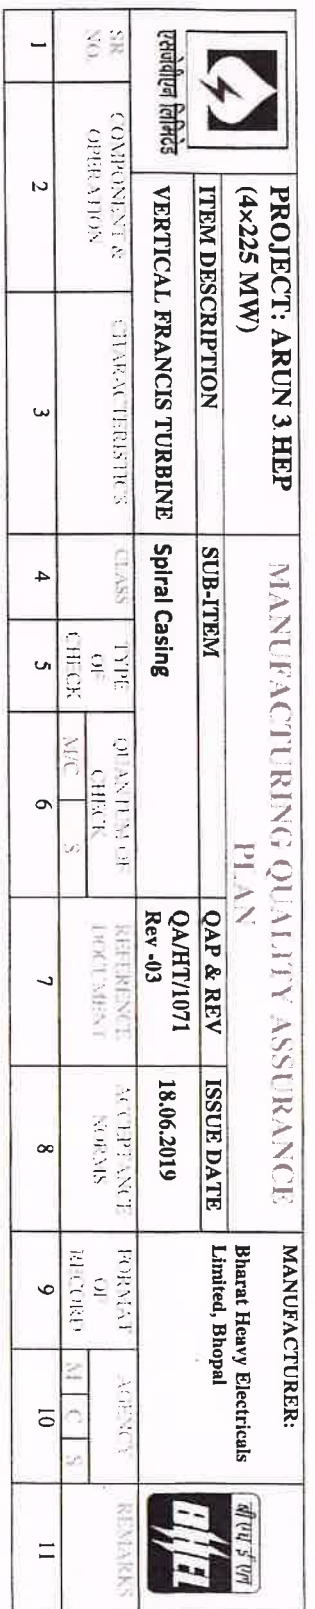 एसजेवीएन लिमिटेड
PROJECT: ARUN 3 HEP
(4×225 MW)
MANUFACTURING QUALITY ASSURANCE
PLAN
MANUFACTURER:
Bharat Heavy Electricals
Limited, Bhopal
बी एच ई एल
BHEL
ITEM DESCRIPTION
SUB-ITEM
QAP & REV
ISSUE DATE
VERTICAL FRANCIS TURBINE
Spiral Casing
QA/HT/1071
Rev -03
18.06.2019
SR
NO.
COMPONENT &
OPERATION
CHARACTERISTICS
CLASS
TYPE
OF
CHECK
QUANTUM OF
CHECK
M/C
S
REFERENCE
DOCUMENT
ACCEPTANCE
NORMS
FORMAT
OF
RECORD
AGENCY
M
C
S
REMARKS
1
2
3
4
5
6
7
8
9
10
11